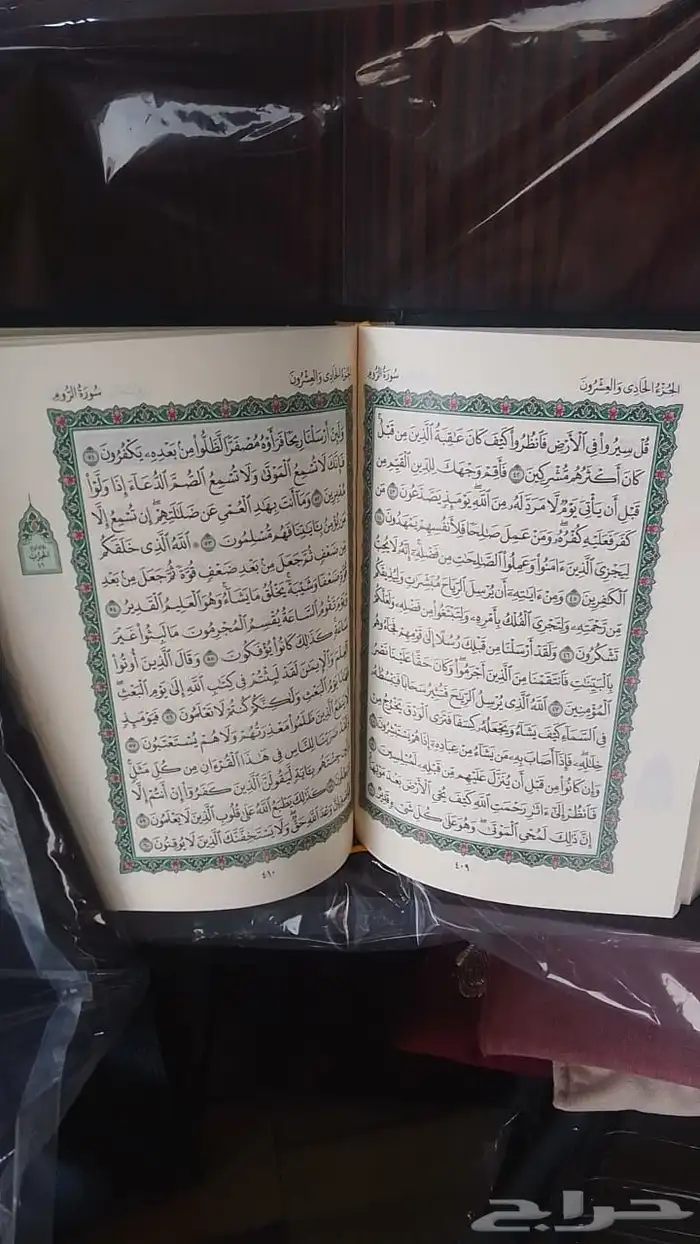 الجزء الحادي والعشرون
سورة الروم
قُلْ سِيرُوا۟ فِى ٱلْأَرْضِ فَٱنظُرُوا۟ كَيْفَ كَانَ عَٰقِبَةُ ٱلَّذِينَ مِن قَبْلُ
كَانَ أَكْثَرُهُم مُّشْرِكِينَ ٤٢ فَأَقِمْ وَجْهَكَ لِلدِّينِ ٱلْقَيِّمِ مِن
قَبْلِ أَن يَأْتِىَ يَوْمٌ لَّا مَرَدَّ لَهُۥ مِنَ ٱللَّهِ يَوْمَئِذٍ يَصَّدَّعُونَ ٤٣ مَن
كَفَرَ فَعَلَيْهِ كُفْرُهُۥ وَمَنْ عَمِلَ صَٰلِحًا فَلِأَنفُسِهِمْ يَمْهَدُونَ ٤٤
لِيَجْزِىَ ٱلَّذِينَ ءَامَنُوا۟ وَعَمِلُوا۟ ٱلصَّٰلِحَٰتِ مِن فَضْلِهِۦٓ إِنَّهُۥ لَا يُحِبُّ
ٱلْكَٰفِرِينَ ٤٥ وَمِنْ ءَايَٰتِهِۦٓ أَن يُرْسِلَ ٱلرِّيَاحَ مُبَشِّرَٰتٍ وَلِيُذِيقَكُم
مِّن رَّحْمَتِهِۦ وَلِتَجْرِىَ ٱلْفُلْكُ بِأَمْرِهِۦ وَلِتَبْتَغُوا۟ مِن فَضْلِهِۦ وَلَعَلَّكُمْ
تَشْكُرُونَ ٤٦ وَلَقَدْ أَرْسَلْنَا مِن قَبْلِكَ رُسُلًا إِلَىٰ قَوْمِهِمْ فَجَآءُوهُم
بِٱلْبَيِّنَٰتِ فَٱنتَقَمْنَا مِنَ ٱلَّذِينَ أَجْرَمُوا۟ وَكَانَ حَقًّا عَلَيْنَا نَصْرُ
ٱلْمُؤْمِنِينَ ٤٧ ٱللَّهُ ٱلَّذِى يُرْسِلُ ٱلرِّيَٰحَ فَتُثِيرُ سَحَابًا فَيَبْسُطُهُۥ
فِى ٱلسَّمَآءِ كَيْفَ يَشَآءُ وَيَجْعَلُهُۥ كِسَفًا فَتَرَى ٱلْوَدْقَ يَخْرُجُ مِنْ
خِلَٰلِهِۦ فَإِذَآ أَصَابَ بِهِۦ مَن يَشَآءُ مِنْ عِبَادِهِۦٓ إِذَا هُمْ يَسْتَبْشِرُونَ ٤٨
وَإِن كَانُوا۟ مِن قَبْلِ أَن يُنَزَّلَ عَلَيْهِم مِّن قَبْلِهِۦ لَمُبْلِسِينَ ٤٩
فَٱنظُرْ إِلَىٰٓ ءَاثَٰرِ رَحْمَتِ ٱللَّهِ كَيْفَ يُحْىِ ٱلْأَرْضَ بَعْدَ مَوْتِهَآ
إِنَّ ذَٰلِكَ لَمُحْىِ ٱلْمَوْتَىٰ وَهُوَ عَلَىٰ كُلِّ شَىْءٍ قَدِيرٌ ٥٠
٤٠٩
الجزء الحادي والعشرون
سورة الروم
وَلَئِنْ أَرْسَلْنَا رِيحًا فَرَأَوْهُ مُصْفَرًّا لَّظَلُّوا۟ مِنۢ بَعْدِهِۦ يَكْفُرُونَ ٥١
فَإِنَّكَ لَا تُسْمِعُ ٱلْمَوْتَىٰ وَلَا تُسْمِعُ ٱلصُّمَّ ٱلدُّعَآءَ إِذَا وَلَّوْا۟
مُدْبِرِينَ ٥٢ وَمَآ أَنتَ بِهَٰدِ ٱلْعُمْىِ عَن ضَلَٰلَتِهِمْ إِن تُسْمِعُ إِلَّا
مَن يُؤْمِنُ بِـَٔايَٰتِنَا فَهُم مُّسْلِمُونَ ٥٣ ۞ ٱللَّهُ ٱلَّذِى خَلَقَكُم
مِّن ضَعْفٍ ثُمَّ جَعَلَ مِنۢ بَعْدِ ضَعْفٍ قُوَّةً ثُمَّ جَعَلَ مِنۢ بَعْدِ
قُوَّةٍ ضَعْفًا وَشَيْبَةً يَخْلُقُ مَا يَشَآءُ وَهُوَ ٱلْعَلِيمُ ٱلْقَدِيرُ ٥٤
وَيَوْمَ تَقُومُ ٱلسَّاعَةُ يُقْسِمُ ٱلْمُجْرِمُونَ مَا لَبِثُوا۟ غَيْرَ
سَاعَةٍ كَذَٰلِكَ كَانُوا۟ يُؤْفَكُونَ ٥٥ وَقَالَ ٱلَّذِينَ أُوتُوا۟
ٱلْعِلْمَ وَٱلْإِيمَٰنَ لَقَدْ لَبِثْتُمْ فِى كِتَٰبِ ٱللَّهِ إِلَىٰ يَوْمِ ٱلْبَعْثِ
فَهَٰذَا يَوْمُ ٱلْبَعْثِ وَلَٰكِنَّكُمْ كُنتُمْ لَا تَعْلَمُونَ ٥٦ فَيَوْمَئِذٍ
لَّا يَنفَعُ ٱلَّذِينَ ظَلَمُوا۟ مَعْذِرَتُهُمْ وَلَا هُمْ يُسْتَعْتَبُونَ ٥٧
وَلَقَدْ ضَرَبْنَا لِلنَّاسِ فِى هَٰذَا ٱلْقُرْءَانِ مِن كُلِّ مَثَلٍ
وَلَئِن جِئْتَهُم بِـَٔايَةٍ لَّيَقُولَنَّ ٱلَّذِينَ كَفَرُوٓا۟ إِنْ أَنتُمْ إِلَّا
مُبْطِلُونَ ٥٨ كَذَٰلِكَ يَطْبَعُ ٱللَّهُ عَلَىٰ قُلُوبِ ٱلَّذِينَ لَا يَعْلَمُونَ ٥٩
فَٱصْبِرْ إِنَّ وَعْدَ ٱللَّهِ حَقٌّ وَلَا يَسْتَخِفَّنَّكَ ٱلَّذِينَ لَا يُوقِنُونَ ٦٠
٤١٠
الحزب
٤١
حراج